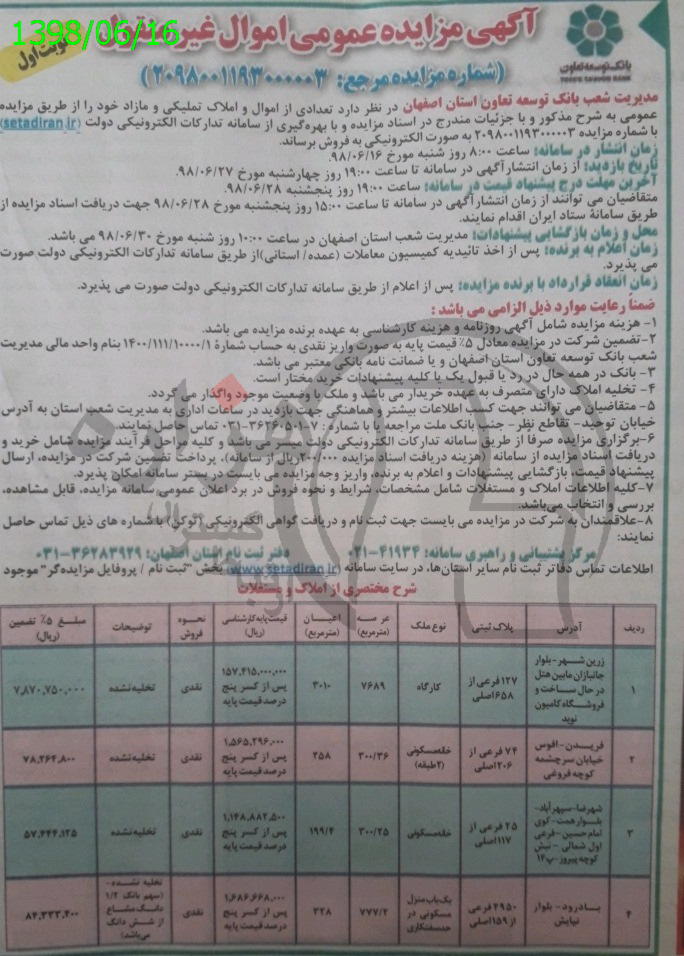 1398/06/16
نوبت اول
آگهی مزایده عمومی اموال غیر منقول
(شماره مزایده مرجع: ۲۰۹۸۰۰۱۱۹۳۰۰۰۰۰۳)
بانک توسعه تعاون
TOSE'E TA'AVON BANK
مدیریت شعب بانک توسعه تعاون استان اصفهان در نظر دارد تعدادی از اموال و املاک تملیکی و مازاد خود را از طریق مزایده
عمومی به شرح مذکور و با جزئیات مندرج در اسناد مزایده و با بهره‌گیری از سامانه تدارکات الکترونیکی دولت (setadiran.ir)
با شماره مزایده ۲۰۹۸۰۰۱۱۹۳۰۰۰۰۰۳ به صورت الکترونیکی به فروش برساند.
زمان انتشار در سامانه: ساعت ۸:۰۰ روز شنبه مورخ ۹۸/۰۶/۱۶.
تاریخ بازدید: از زمان انتشار آگهی در سامانه تا ساعت ۱۹:۰۰ روز چهارشنبه مورخ ۹۸/۰۶/۲۷.
آخرین مهلت درج پیشنهاد قیمت در سامانه: ساعت ۱۹:۰۰ روز پنجشنبه ۹۸/۰۶/۲۸.
متقاضیان می توانند از زمان انتشار آگهی در سامانه تا ساعت ۱۵:۰۰ روز پنجشنبه مورخ ۹۸/۰۶/۲۸ جهت دریافت اسناد مزایده از
طریق سامانهٔ ستاد ایران اقدام نمایند.
محل و زمان بازگشایی پیشنهادات: مدیریت شعب استان اصفهان در ساعت ۱۰:۰۰ روز شنبه مورخ ۹۸/۰۶/۳۰ می باشد.
زمان اعلام به برنده: پس از اخذ تائیدیه کمیسیون معاملات (عمده/ استانی)از طریق سامانه تدارکات الکترونیکی دولت صورت
می پذیرد.
زمان انعقاد قرارداد با برنده مزایده: پس از اعلام از طریق سامانه تدارکات الکترونیکی دولت صورت می پذیرد.
ضمناً رعایت موارد ذیل الزامی می باشد :
۱- هزینه مزایده شامل آگهی روزنامه و هزینه کارشناسی به عهده برنده مزایده می باشد.
۲-تضمین شرکت در مزایده معادل ۵٪ قیمت پایه به صورت واریز نقدی به حساب شمارهٔ ۱۴۰۰/۱۱۱/۱۰۰۰۰/۱ بنام واحد مالی مدیریت
شعب بانک توسعه تعاون استان اصفهان و یا ضمانت نامه بانکی معتبر می باشد.
۳- بانک در همه حال در رد یا قبول یک یا کلیه پیشنهادات خرید مختار است.
۴- تخلیه املاک دارای متصرف به عهده خریدار می باشد و ملک با وضعیت موجود واگذار می گردد.
۵- متقاضیان می توانند جهت کسب اطلاعات بیشتر و هماهنگی جهت بازدید در ساعات اداری به مدیریت شعب استان به آدرس
خیابان توحید- تقاطع نظر- جنب بانک ملت مراجعه یا با شماره : ۷-۰۳۱-۳۶۲۶۰۵۰۱ تماس حاصل نمایند.
۶-برگزاری مزایده صرفا از طریق سامانه تدارکات الکترونیکی دولت می باشد و کلیه مراحل فرآیند مزایده شامل خرید و
دریافت اسناد مزایده از سامانه (هزینه دریافت اسناد مزایده ۲۰۰/۰۰۰ریال از سامانه)، پرداخت تضمین شرکت در مزایده، ارسال
پیشنهاد قیمت، بازگشایی پیشنهادات و اعلام به برنده، واریز وجه مزایده می بایست در بستر سامانه امکان پذیرد.
۷-کلیه اطلاعات املاک و مستغلات شامل مشخصات، شرایط و نحوه فروش در برد اعلان عمومی سامانه مزایده، قابل مشاهده،
بررسی و انتخاب می‌باشد.
۸-علاقمندان به شرکت در مزایده می بایست جهت ثبت نام و دریافت گواهی الکترونیکی (توکن) با شماره های ذیل تماس حاصل
نمایند:
مرکز پشتیبانی و راهبری سامانه: ۰۲۱-۴۱۹۳۴ دفتر ثبت نام استان اصفهان: ۰۳۱-۳۶۲۸۳۹۲۹
اطلاعات تماس دفاتر ثبت نام سایر استان‌ها، در سایت سامانه (www.setadiran.ir) بخش "ثبت نام / پروفایل مزایده‌گر" موجود
شرح مختصری از املاک و مستغلات
ردیف آدرس پلاک ثبتی نوع ملک عرصه (مترمربع) اعیان (مترمربع) قیمت پایه کارشناسی (ریال) نحوه فروش توضیحات مبلغ ۵٪ تضمین (ریال)
۱ زرین شهر- بلوار جانبازان مابین هتل در حال ساخت و فروشگاه کامیون نوید ۱۲۷فرعی از ۶۵۸اصلی کارگاه ۷۶۸۹ ۳۰۱۰ ۱۵۷,۴۱۵,۰۰۰,۰۰۰ پس از کسر پنج درصد قیمت پایه نقدی تخلیه نشده ۷,۸۷۰,۷۵۰,۰۰۰
۲ فریدن- افوس خیابان سرچشمه کوچه فروغی ۷۴ فرعی از ۲۰۶اصلی خانه مسکونی (۲طبقه) ۳۰۰/۳۶ ۲۵۸ ۱,۵۶۵,۲۹۶,۰۰۰ پس از کسر پنج درصد قیمت پایه نقدی تخلیه نشده ۷۸,۲۶۴,۸۰۰
۳ شهرضا-سپهرآباد-بلوار همت-کوی امام حسین-فرعی اول شمالی - نبش کوچه پیروز-پ۱۴ ۲۵ فرعی از ۱۱۷اصلی خانه مسکونی ۳۰۰/۲۵ ۱۹۹/۴ ۱,۱۴۸,۸۸۲,۵۰۰ پس از کسر پنج درصد قیمت پایه نقدی تخلیه نشده ۵۷,۴۴۴,۱۲۵
۴ بادرود- بلوار نیایش ۴۹۵۰فرعی از ۱۵۹اصلی یکباب منزل مسکونی در حد سفتکاری ۷۷۷/۲ ۳۲۸ ۱,۶۸۶,۶۶۸,۰۰۰ پس از کسر پنج درصد قیمت پایه نقدی تخلیه نشده- (سهم بانک ۱/۲ دانگ مشاع از شش دانگ می‌باشد) ۸۴,۳۳۳,۴۰۰